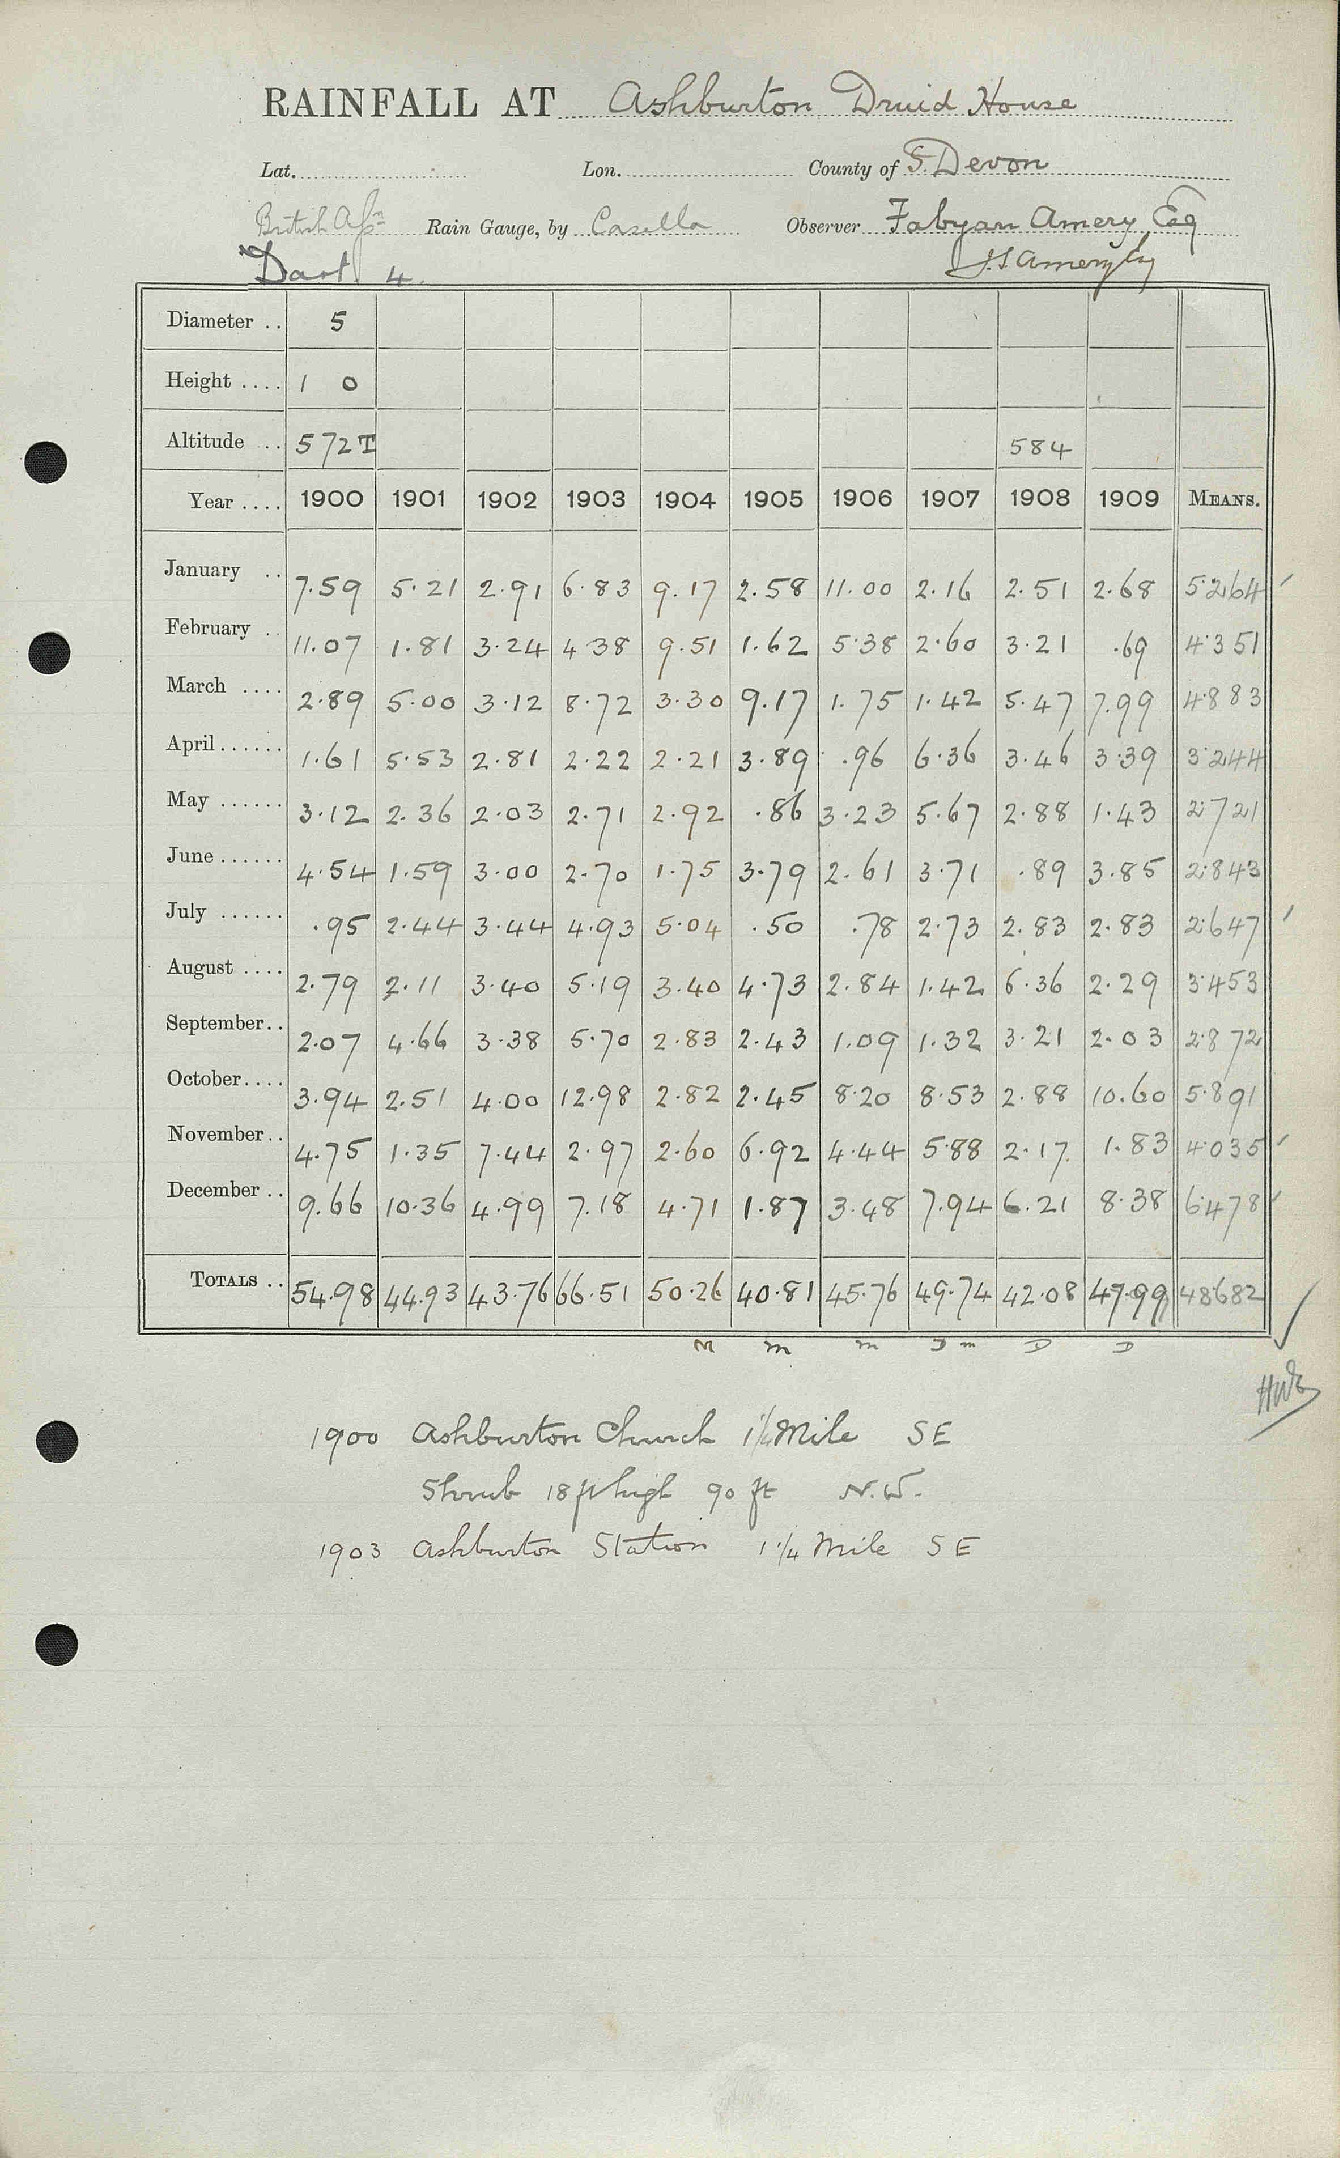 RAINFALL AT Ashburton Druid House
Lat. Lon. County of S. Devon
British Assn Rain Gauge, by Casella Observer Fabyan Amery, Esq
Dart 4. J.S. Amery Esq
Diameter .. 5
Height .... 1 0
Altitude ... 572T 584
Year .... 1900 1901 1902 1903 1904 1905 1906 1907 1908 1909 MEANS.
January .. 7.59 5.21 2.91 6.83 9.17 2.58 11.00 2.16 2.51 2.68 5.264
February .. 11.07 1.81 3.24 4.38 9.51 1.62 5.38 2.60 3.21 .69 4.351
March .... 2.89 5.00 3.12 8.72 3.30 9.17 1.75 1.42 5.47 7.99 4.883
April ...... 1.61 5.53 2.81 2.22 2.21 3.89 .96 6.36 3.46 3.39 3.244
May ...... 3.12 2.36 2.03 2.71 2.92 .86 3.23 5.67 2.88 1.43 2.721
June ...... 4.54 1.59 3.00 2.70 1.75 3.79 2.61 3.71 .89 3.85 2.843
July ...... .95 2.44 3.44 4.93 5.04 .50 .78 2.73 2.83 2.83 2.647
August .... 2.79 2.11 3.40 5.19 3.40 4.73 2.84 1.42 6.36 2.29 3.453
September.. 2.07 4.66 3.38 5.70 2.83 2.43 1.09 1.32 3.21 2.03 2.872
October.... 3.94 2.51 4.00 12.98 2.82 2.45 8.20 8.53 2.88 10.60 5.891
November.. 4.75 1.35 7.44 2.97 2.60 6.92 4.44 5.88 2.17 1.83 4.035
December .. 9.66 10.36 4.99 7.18 4.71 1.87 3.48 7.94 6.21 8.38 6.478
TOTALS .. 54.98 44.93 43.76 66.51 50.26 40.81 45.76 49.74 42.08 47.99 48.682
M m m D m D D
1900 Ashburton Church 1¼ Mile SE
Shrub 18 ft high 90 ft N.W.
1903 Ashburton Station 1¼ Mile SE